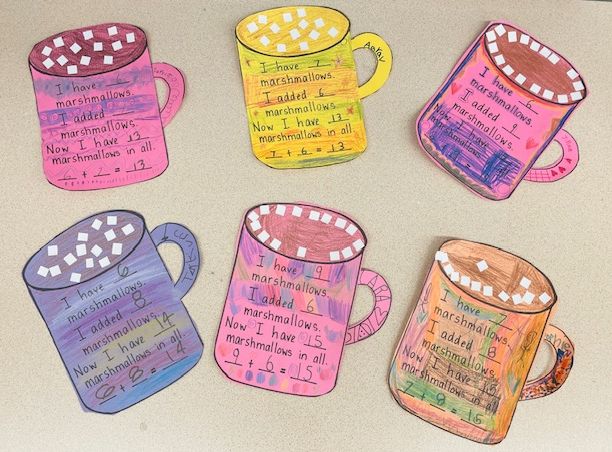 I have 6
marshmallows.
I added
marshmallows.
Now I have 13
marshmallows in all.
6 + 7 = 13
I have 7
marshmallows.
I added 6
marshmallows.
Now I have 13
marshmallows in all.
7 + 6 = 13
I have 6
marshmallows.
I added 9
marshmallows.
Now I have
marshmallows
I have 6
marshmallows.
I added 8
marshmallows.
Now I have 14
marshmallows in all.
6 + 8 = 14
I have 9
marshmallows.
I added 6
marshmallows.
Now I have 15
marshmallows in all.
9 + 6 = 15
I have 7
marshmallows.
I added 8
marshmallows.
Now I have 15
marshmallows in all.
7 + 8 = 15